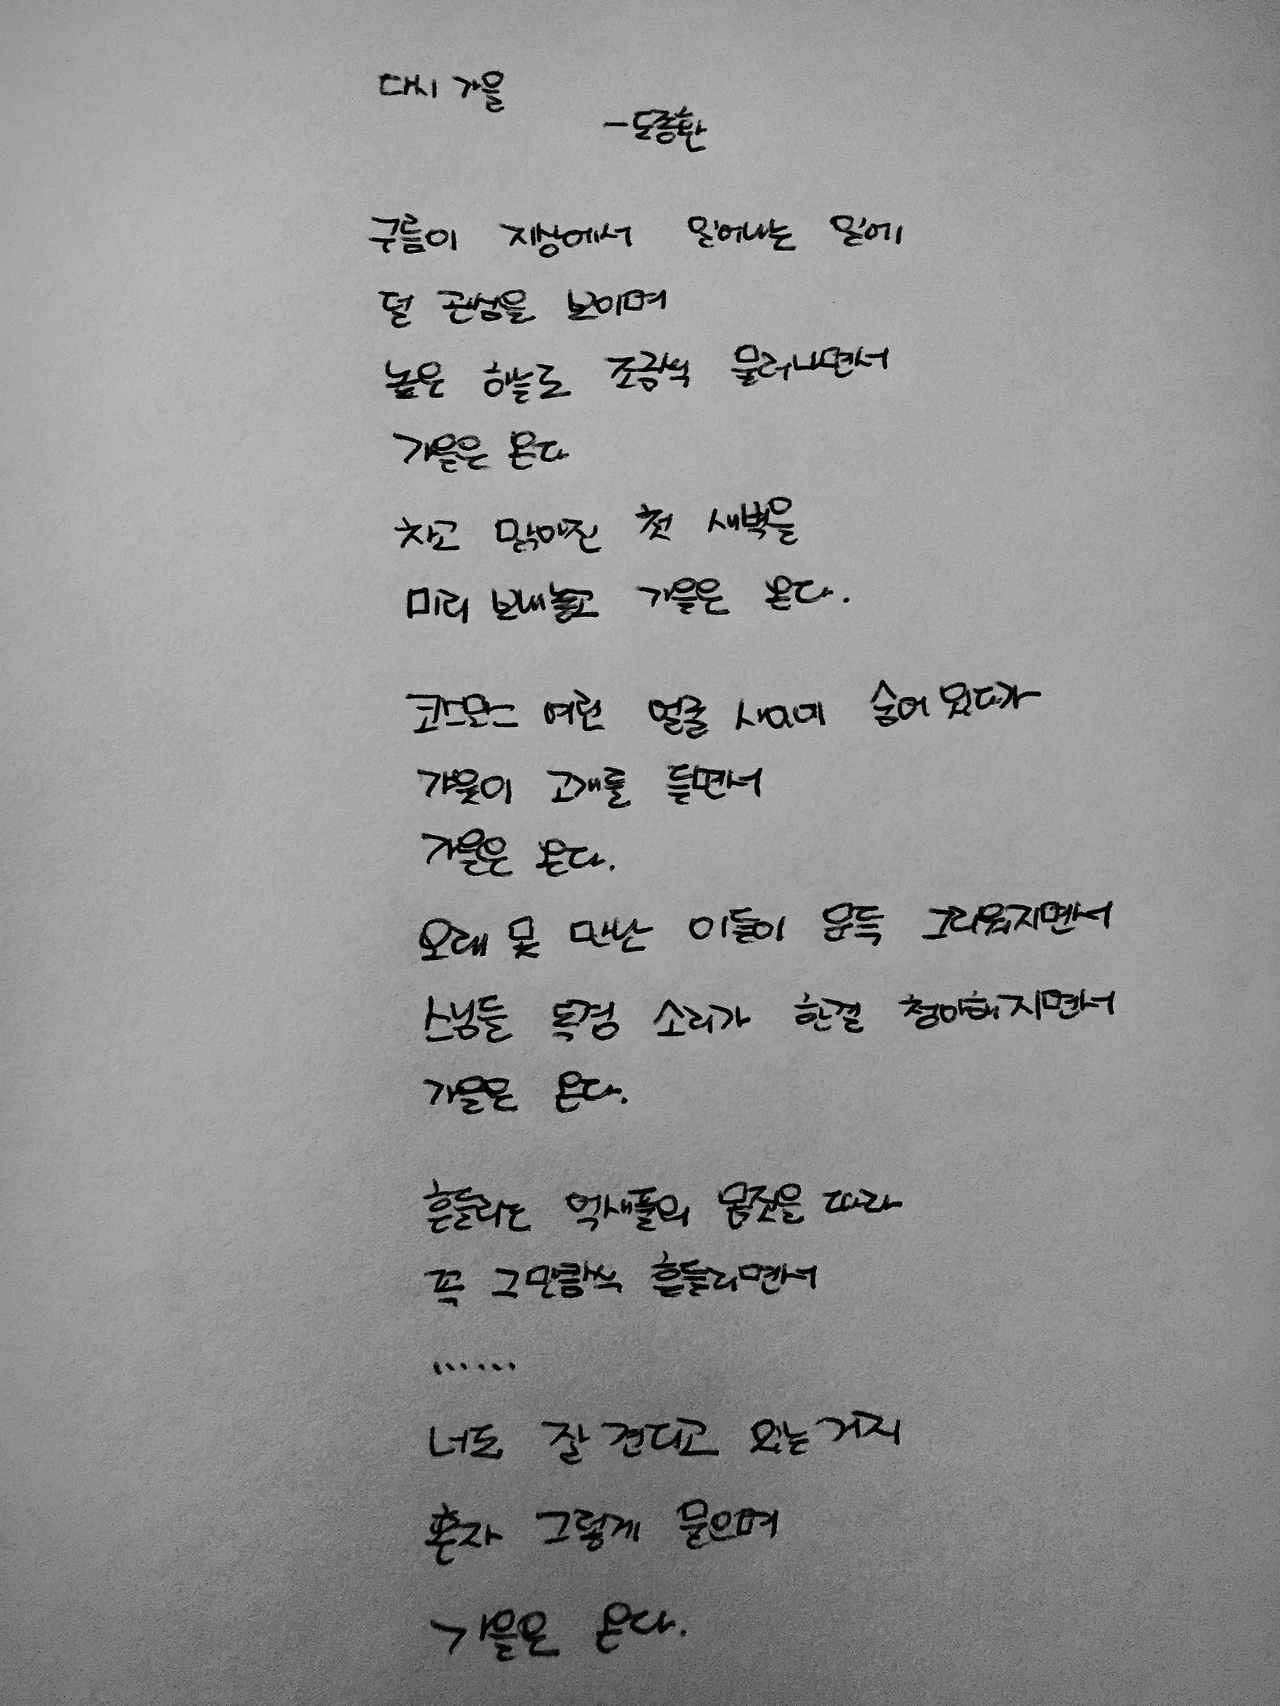 다시 가을
-도종환
구름이 지상에서 일어나는 일에
덜 관심을 보이며
높은 하늘로 조금씩 물러나면서
가을은 온다
차고 맑아진 첫 새벽을
미리 보내놓고 가을은 온다.
코스모스 여린 얼굴 사이에 숨어 있다가
갸웃이 고개를 들면서
가을은 온다.
오래 못 만난 이들이 문득 그리워지면서
스님들 독경 소리가 한결 청아해지면서
가을은 온다.
흔들리는 억새풀의 몸짓을 따라
꼭 그만큼씩 흔들리면서
......
너도 잘 견디고 있는 거지
혼자 그렇게 물으며
가을은 온다.